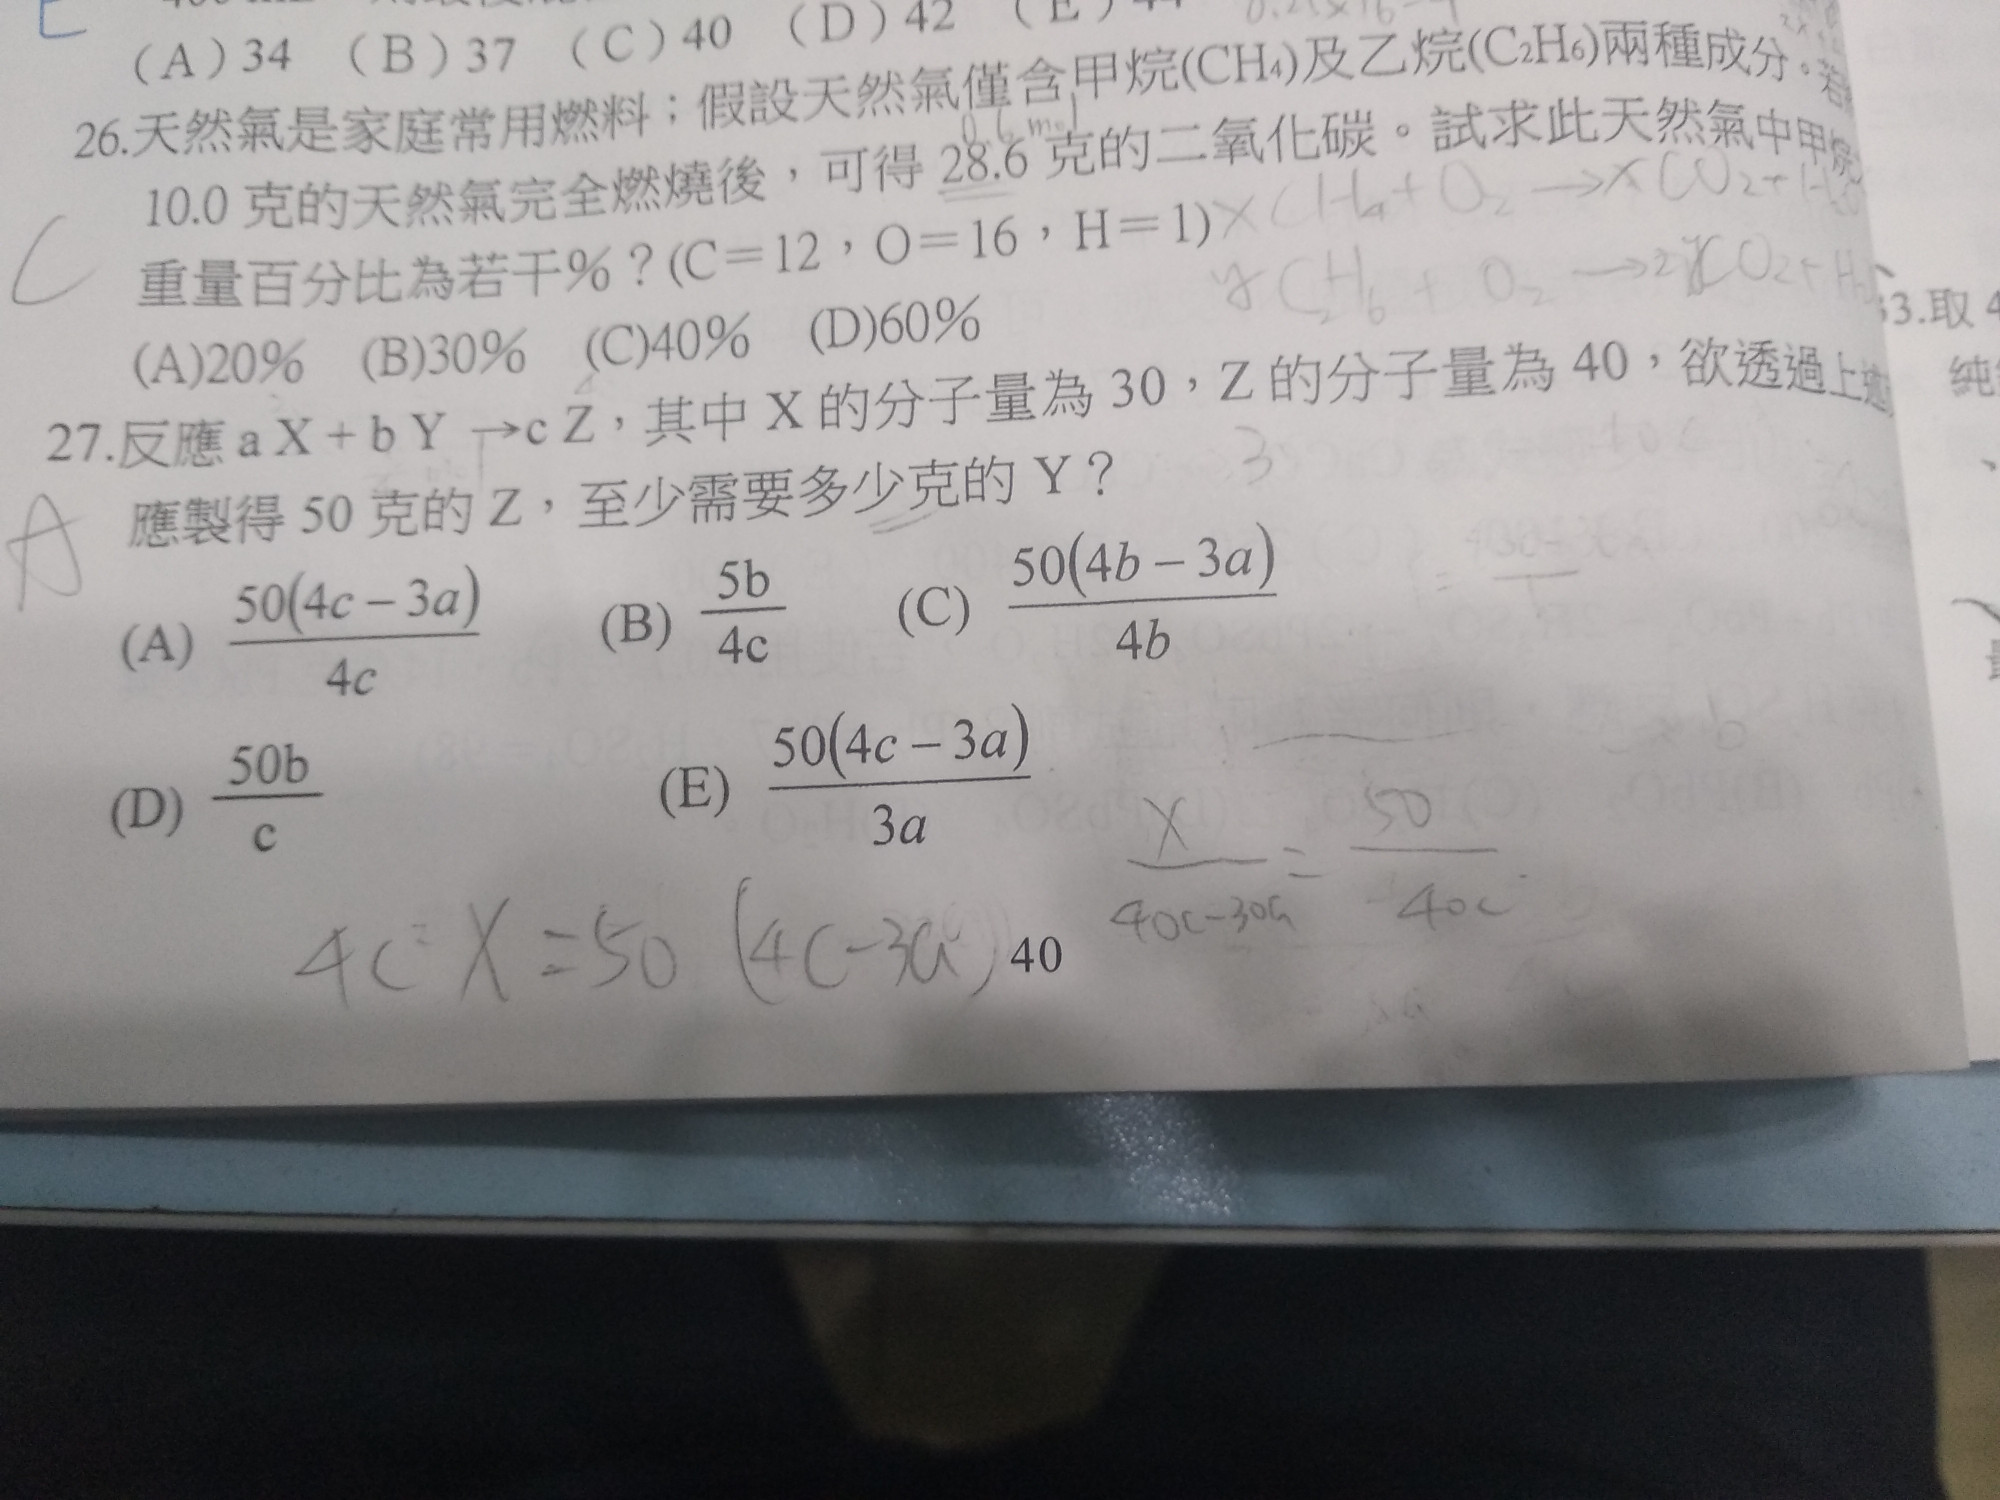 (A)34 (B)37 (C)40 (D)42 (E)
26.天然氣是家庭常用燃料；假設天然氣僅含甲烷(CH4)及乙烷(C2H6)兩種成分。若
0.6 mol
10.0 克的天然氣完全燃燒後，可得 28.6 克的二氧化碳。試求此天然氣中甲烷
xCH4+O2→xCO2+H2O
C
重量百分比為若干%？(C＝12，O＝16，H＝1)
yC2H6+O2→2yCO2+H2
(A)20% (B)30% (C)40% (D)60%
33.取 4
27.反應 a X + b Y →c Z，其中 X 的分子量為 30，Z 的分子量為 40，欲透過上述
純
A
應製得 50 克的 Z，至少需要多少克的 Y？
(A) 50(4c－3a)/4c (B) 5b/4c (C) 50(4b－3a)/4b
(D) 50b/c (E) 50(4c－3a)/3a
X/40c-30a = 50/40c
4c X = 50 (4c-3a)
40